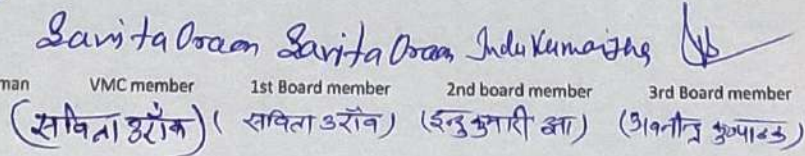 Savita Oraon Savita Oraon Indu Kumari Jha
man VMC member 1st Board member 2nd board member 3rd Board member
(सविता उराँव) ( सविता उराँव) (इन्दु कुमारी झा)